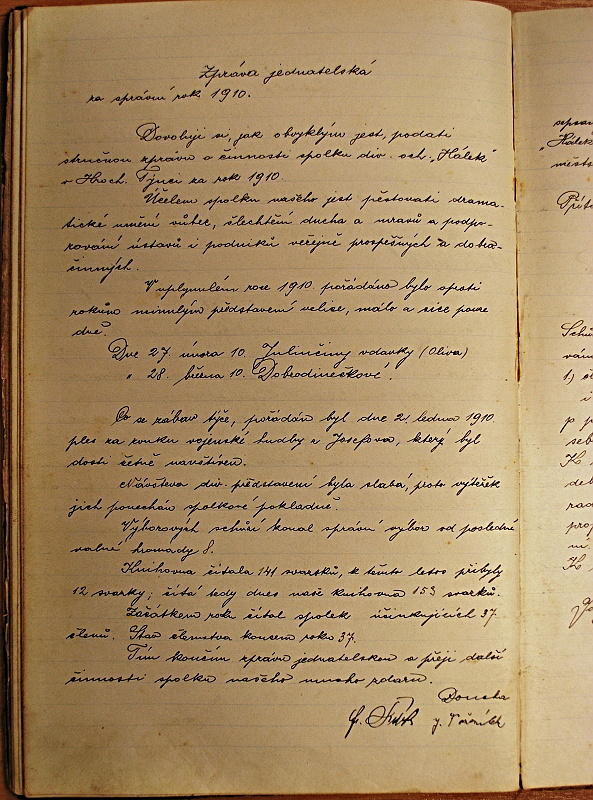 Zpráva jednatelská
za správní rok 1910.
Dovoluji si, jak obvyklým jest, podati
stručnou zprávu o činnosti spolku div. och. „Hálek"
v Hroch. Týnci za rok 1910.
Účelem spolku našeho jest pěstovati drama-
tické umění vůbec, šlechtění ducha a mravů a podpo-
rování ústavů i podniků veřejně prospěšných a dobro-
činných.
V uplynulém roce 1910 pořádáno bylo oproti
rokům minulým představení velice, málo a sice pouze
dvě.
Dne 27. února 10. Julinčiny vdavky (Oliva)
" 28. března 10. Dobrodinečkové.
Co se zábav týče, pořádán byl dne 2. ledna 1910
ples za zvuku vojenské hudby z Josefova, který byl
dosti četně navštíven.
Návštěva div. představení byla slabá, proto výtěžek
jich ponechán spolkové pokladně.
Výborových schůzí konal správní výbor od poslední
valné hromady 8.
Knihovna čítala 141 svazků, k těmto letos přibyly
12 svazky; čítá tedy dnes naše knihovna 153 svazků.
Začátkem roku čítal spolek účinkujících 37
členů. Stav členstva koncem roku 37.
Tím končím zprávu jednatelskou a přeji další
činnosti spolku našeho mnoho zdaru.
„Hálek
městs
Schů
1.)
i
p
seb
K
deb
prop
m.
K